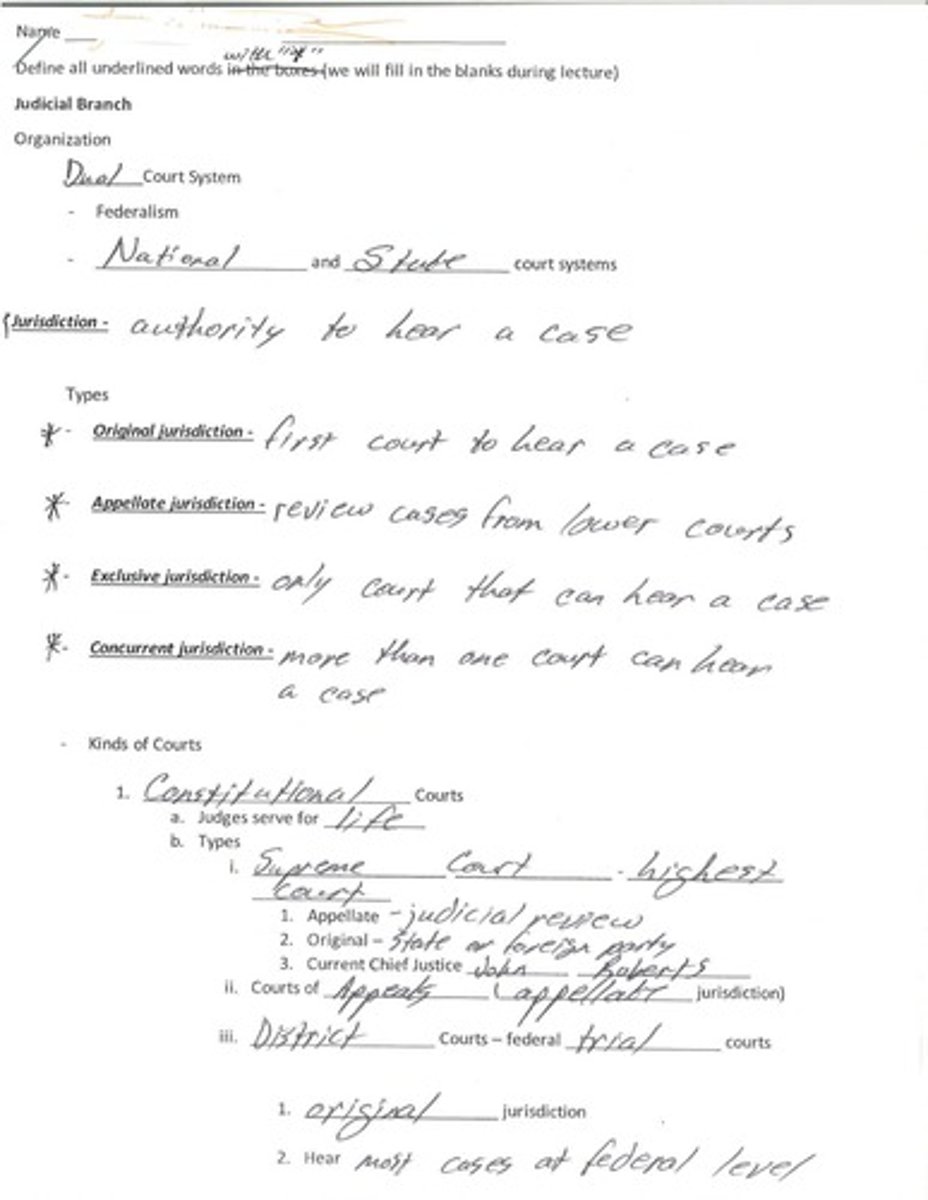 Name
with "*"
Define all underlined words in the boxes (we will fill in the blanks during lecture)
Judicial Branch
Organization
Dual Court System
- Federalism
- National and State court systems
Jurisdiction - authority to hear a case
Types
*- Original jurisdiction - first court to hear a case
*- Appellate jurisdiction - review cases from lower courts
*- Exclusive jurisdiction - only court that can hear a case
*- Concurrent jurisdiction - more than one court can hear
a case
- Kinds of Courts
1. Constitutional Courts
a. Judges serve for life
b. Types
i. Supreme Court - highest
court
1. Appellate - judicial review
2. Original – State or foreign party
3. Current Chief Justice John Roberts
ii. Courts of Appeals (appellate jurisdiction)
iii. District Courts – federal trial courts
1. original jurisdiction
2. Hear most cases at federal level